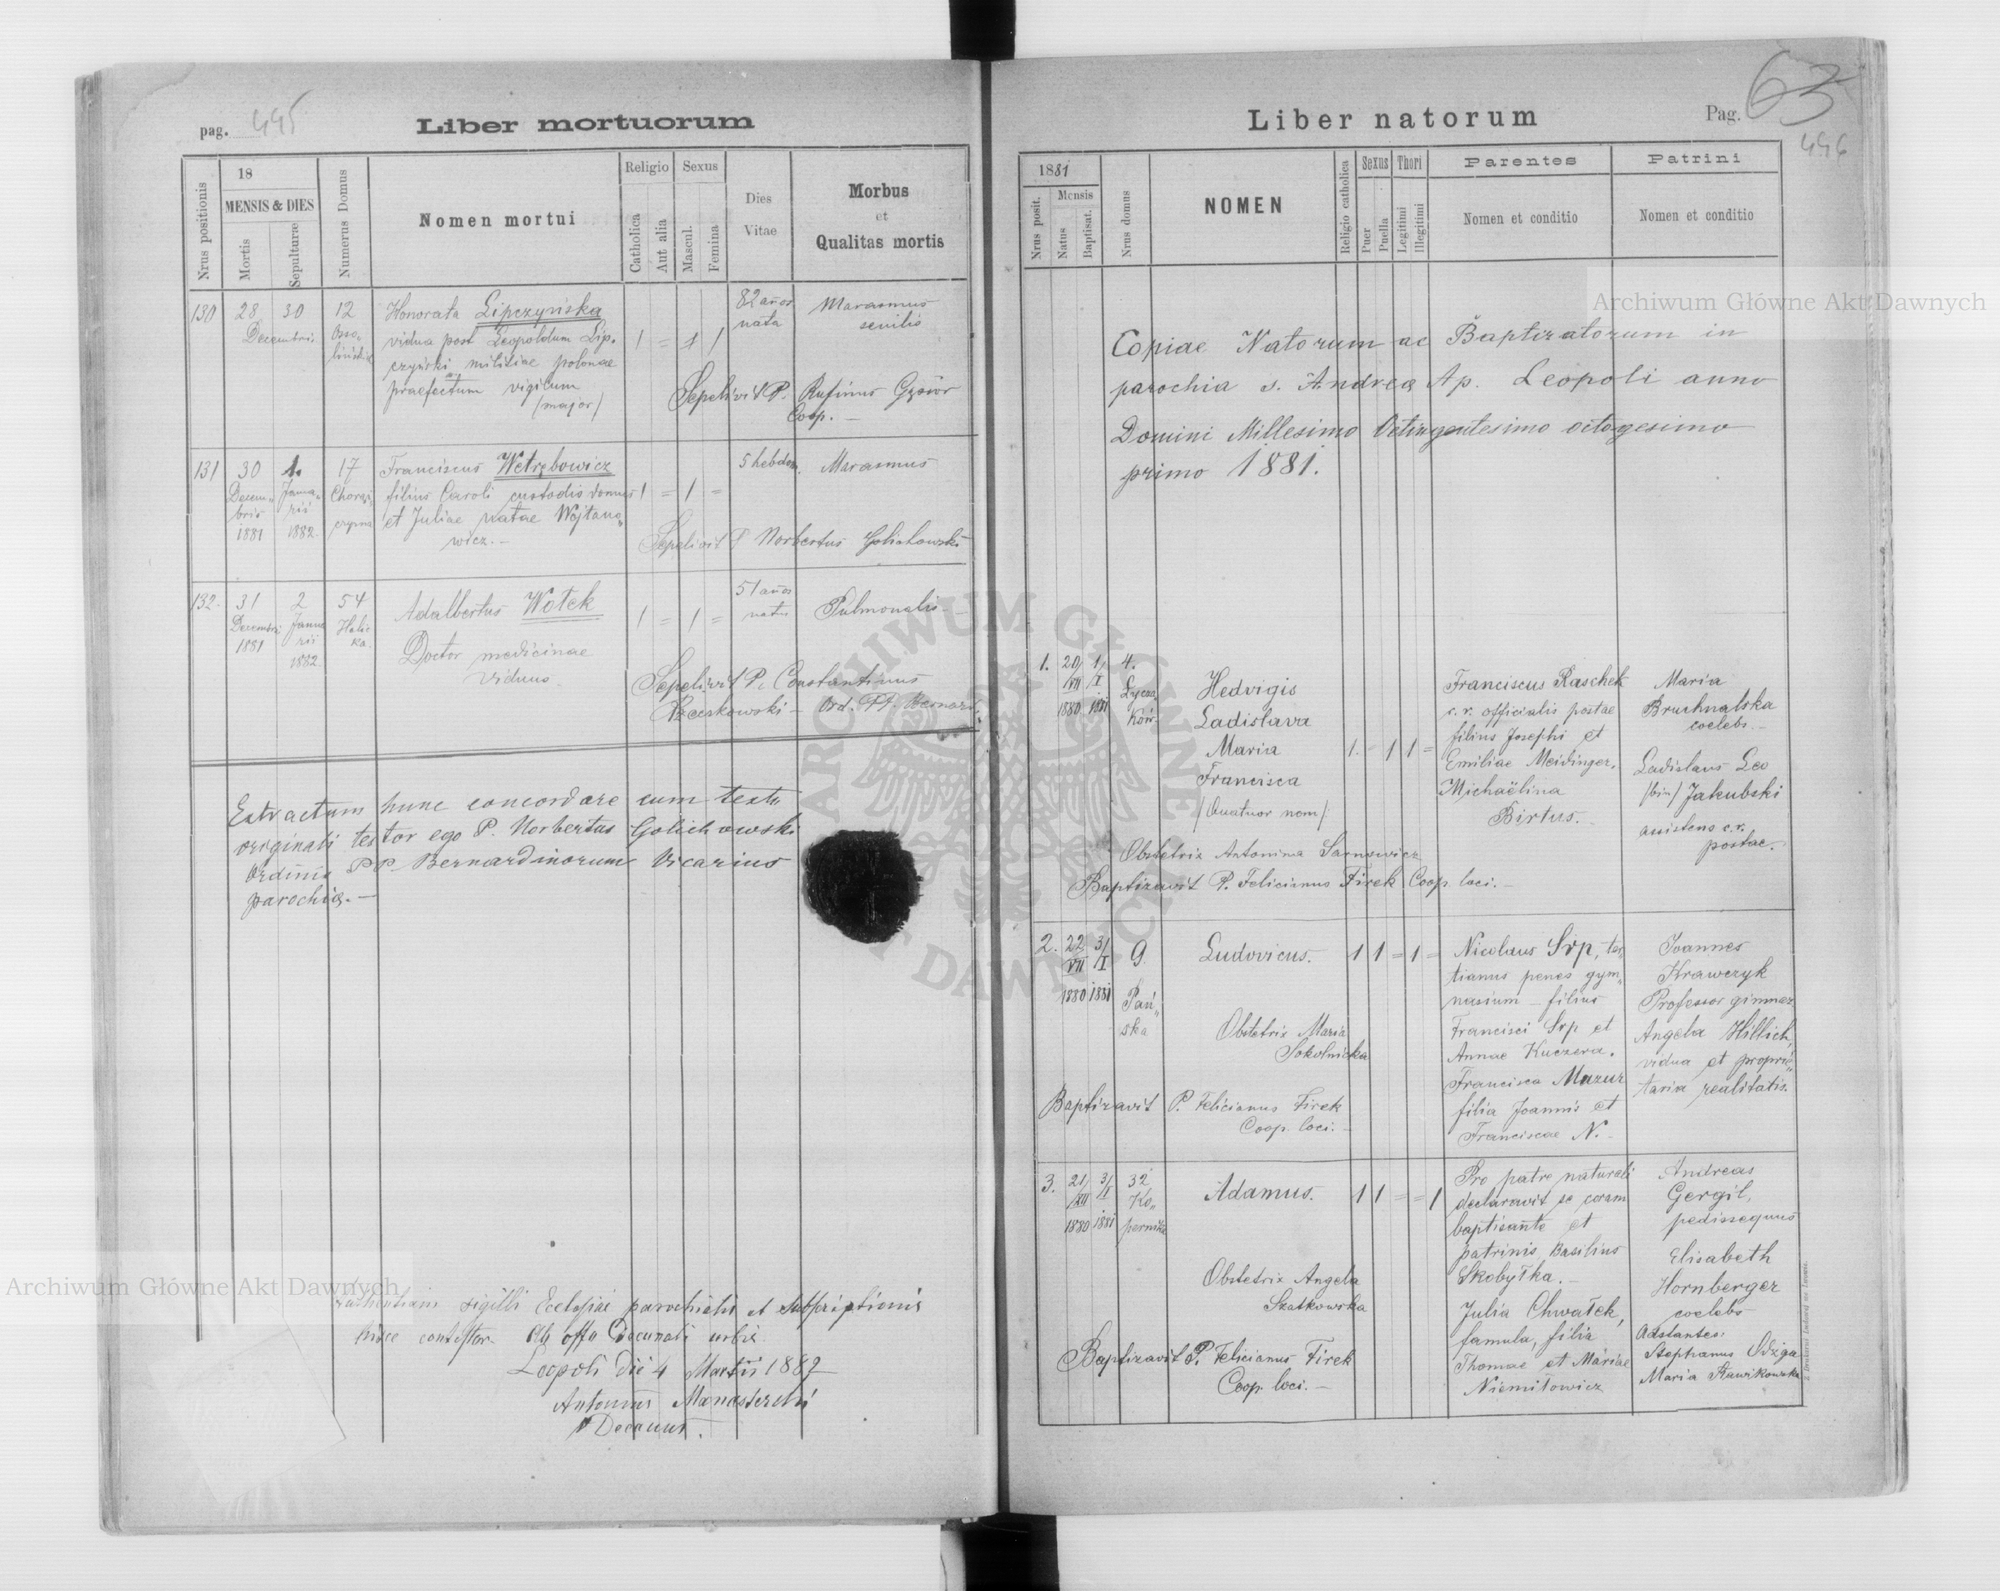 pag. 495
Liber mortuorum
Nrus positionis
18
MENSIS & DIES
Mortis
Sepulturæ
Numerus Domus
Nomen mortui
Religio
Catholica
Aut alia
Sexus
Mascul.
Femina
Dies
Vitae
Morbus
et
Qualitas mortis
130 28 30 12 Honorata Lipczyńska 82 años Marasmus
Decembris nata senilis
vidua post Leopoldum Lip-
czyński militiae polonae
praefectum vigilum
/major/
Sepelivit P. Rufinus Gąsior
Coop. -
131 30 1. 17 Franciscus Wetrębowicz 5 hebdom. Marasmus
Decem- Janua-
bris rii
1881 1882.
filius Caroli custodis domus
et Juliae natae Wojtano-
wicz. -
Sepelivit P Norbertus Golichowski
132. 31 2 54 Adalbertus Wotek 51 años Pulmonalis -
Decembris Janua- Halic natus
1881 rii ka.
1882.
Doctor medicinae
viduus.
Sepelivit P. Constantinus
Ord. PP. Bernard.
Extractum hunc concordare cum textu
originali testor ego P. Norbertus Golichowski
Ordinis PP. Bernardinorum Vicarius
parochiae. -
sigilli Ecclesiae parochialis et subscriptionis
hisce contestor. Ab offo Decanali urbis
Leopoli die 4 Martii 1882
Antonius Manasterski
Decanus.
Liber natorum
Pag. 63
496
1881
Nrus posit.
Mensis
Natus
Baptisat.
Nrus domus
NOMEN
Religio catholica
Sexus
Puer
Puella
Thori
Legitimi
Illegitimi
Parentes
Nomen et conditio
Patrini
Nomen et conditio
Copiae Natorum ac Baptizatorum in
parochia s. Andreae Ap. Leopoli anno
Domini Millesimo Octingentesimo octogesimo
primo 1881.
1. 20/VII 1880 1/I 1881 4.
Łycza
ków-
Hedvigis
Ladislava
Maria
Francisca
/Quatuor nom/
1. - 1 1 =
Franciscus Raschek
c. r. officialis postae
filius Josephi et
Emiliae Meidinger.
Michaëlina
Birtus.
Maria
Bruchnalska
coelebs. -
Ladislaus Leo
/bin/ Jakubski
assistens c.r.
postae.
Obstetrix Antonina Sarnowicz
Baptizavit P. Felicianus Firek Coop. loci. -
2. 22/VII 1880 3/I 1881 9
Pań-
ska
Ludovicus.
1 1 = 1 =
Nicolaus Srp, ter-
tianus penes gym-
nasium - filius
Francisci Srp et
Annae Kuczera.
Francisca Mazur
filia Joannis et
Franciscae N. -
Joannes
Krawczyk
Professor gimnaz.
Angela Hillich,
vidua et proprie-
taria realitatis.
Obstetrix Maria
Sokolnicka
Baptizavit P. Felicianus Firek
Coop. loci. -
3. 21/XII 1880 3/I 1881 32
Ko-
pernika
Adamus.
1 1 = = 1
Pro patre naturali
declaravit se coram
baptisante et
patrinis, Basilius
Skobyłka. -
Julia Chwałek,
famula, filia
Thomae et Mariae
Niemiłowicz
Andreas
Gergil,
pedissequus
Elisabeth
Hornberger
coelebs
Adstantes:
Stephanus Odżga
Maria Rawikowska
Obstetrix Angela
Szatkowska
Baptizavit P. Felicianus Firek
Coop. loci. -
Archiwum Główne Akt Dawnych
Archiwum Główne Akt Dawnych
ARCHIWUM GŁÓWNE AKT DAWNYCH